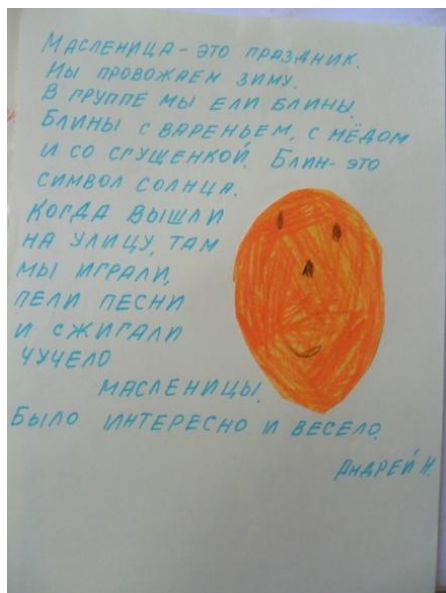 МАСЛЕНИЦА - ЭТО ПРАЗДНИК.
МЫ ПРОВОЖАЕМ ЗИМУ.
В ГРУППЕ МЫ ЕЛИ БЛИНЫ.
БЛИНЫ С ВАРЕНЬЕМ, С МЁДОМ
И СО СГУЩЕНКОЙ. БЛИН - ЭТО
СИМВОЛ СОЛНЦА.
КОГДА ВЫШЛИ
НА УЛИЦУ, ТАМ
МЫ ИГРАЛИ,
ПЕЛИ ПЕСНИ
И СЖИГАЛИ
ЧУЧЕЛО
МАСЛЕНИЦЫ.
БЫЛО ИНТЕРЕСНО И ВЕСЕЛО.
АНДРЕЙ Н.